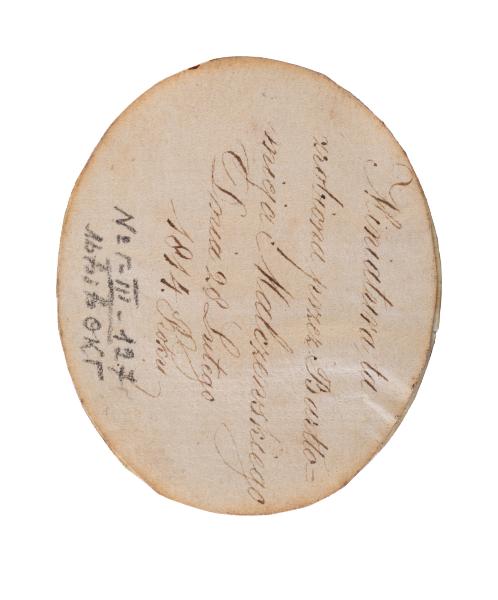 Miniatura ta
zrobiona przez Bartło-
mieja Malczenskiego
Dnia 28 Lutego
1814 Roku
Nr III-127